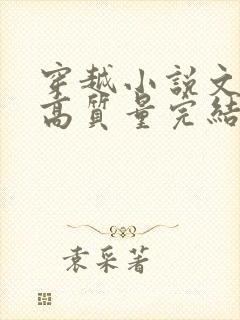 穿越小説文
高質量完結
袁采著